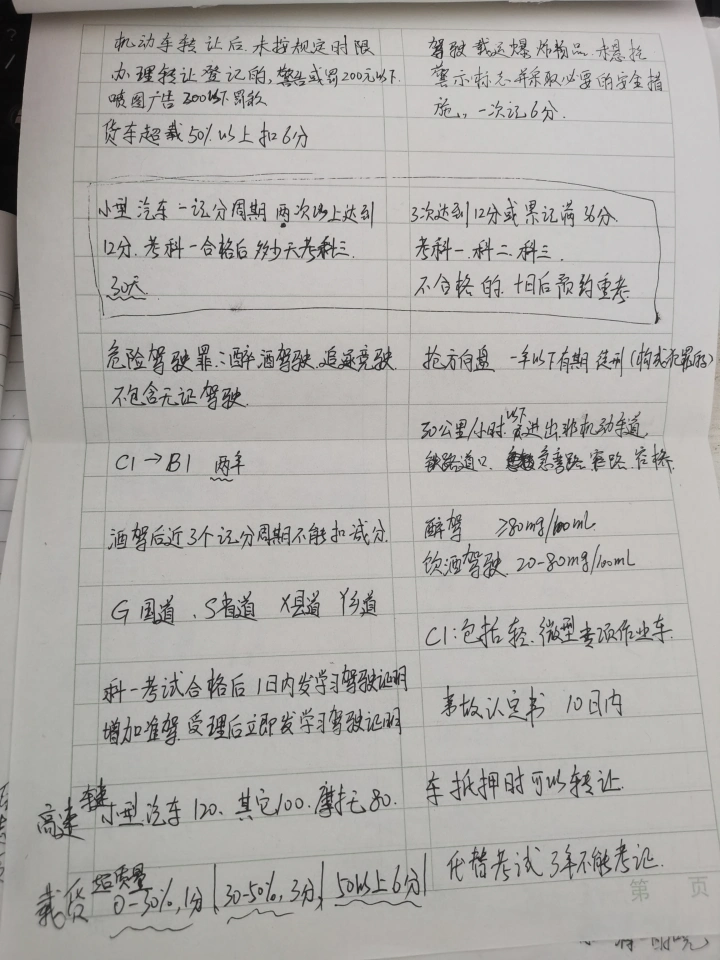 机动车转让后.未按规定时限
办理转让登记的,警告或罚200元以下.
喷图广告 200以下罚款
货车超载50%以上扣6分
小型汽车一记分周期两次以上达到
12分.考科一合格后多少天考科三.
30天
危险驾驶罪:醉酒驾驶.追逐竞驶.
不包含无证驾驶.
C1→B1 两年
酒驾后近3个记分周期不能扣减分.
G 国道、S省道 X县道 Y乡道
科一考试合格后1日内发学习驾驶证明
增加准驾.受理后立即发学习驾驶证明
高速 车速 小型汽车120、其它100.摩托80.
载货 超质量 0-30%,1分 30-50%,3分 50以上6分
驾驶载运爆炸物品.未悬挂
警示标志并采取必要的安全措
施,一次记6分.
3次达到12分或累记满36分.
考科一.科二.科三.
不合格的.十日后预约重考.
抢方向盘 一年以下有期徒刑(构成犯罪的)
30公里/小时以下 进出非机动车道.
铁路道口. 急弯路.窄路.窄桥.
醉驾 ≥80mg/100mL
饮酒驾驶 20-80mg/100mL
C1:包括轻.微型专项作业车.
事故认定书 10日内
车抵押时可以转让.
代替考试3年不能考证.
第 页